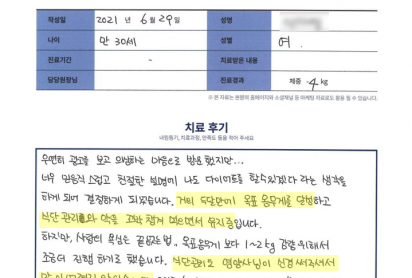 작성일 2021년 6월 29일 성명
나이 만 30세 성별 여.
진료기간 - 치료받은 내용
담당원장님 진료경과 체중 -4kg
※ 본 자료는 본원의 홈페이지와 소셜채널 등 마케팅 자료로도 활용 될 수 있습니다.
치료 후기
내원동기, 치료과정, 만족도 등을 적어 주세요
우연히 광고를 보고 의심하는 마음으로 방문했지만...
너무 믿음직스럽고 친절한 설명에 나도 다이어트를 할수있겠다 라는 생각을
하게 되어 결정하게 되었습니다. 거의 두달만에 목표 몸무게를 달성하고
식단 관리와 약을 고박 챙겨 먹으면서 유지중입니다.
하지만, 사람의 욕심은 끝없는법.. 목표몸무게 보다 1~2kg 감량 위해서
조금더 진행 하기로 했습니다. 식단관리도 영양사님이 신경써주셔서